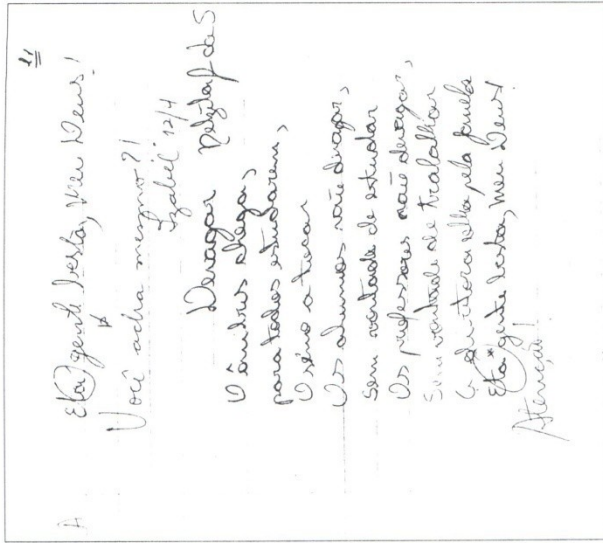 11
A
Eta gente besta, meu Deus!
Você acha mesmo?!
Izabel 12/4
Devagar
O ônibus chega,
para todos estudarem,
O sino a tocar
Os alunos vão divagar,
Sem vontade de estudar
Os professores vão devagar,
Sem vontade de trabalhar
A diretora olha pela janela
Eta* gente besta, meu Deus!
Atenção!